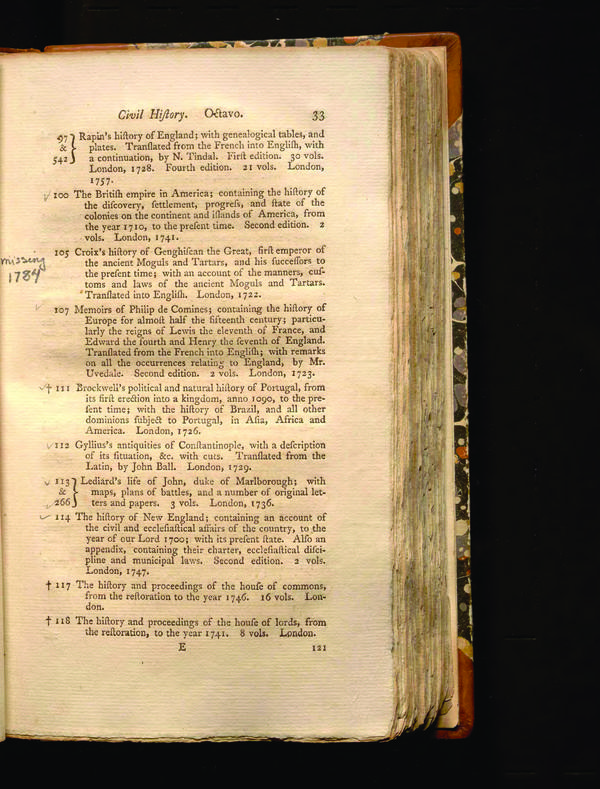 Civil Hiſtory. Octavo. 33
97 & 542 } Rapin's hiſtory of England; with genealogical tables, and
plates. Tranſlated from the French into Engliſh, with
a continuation, by N. Tindal. Firſt edition. 30 vols.
London, 1728. Fourth edition. 21 vols. London,
1757.
✓ 100 The Britiſh empire in America; containing the hiſtory of
the diſcovery, ſettlement, progreſs, and ſtate of the
colonies on the continent and iſlands of America, from
the year 1710, to the preſent time. Second edition. 2
vols. London, 1741.
missing
1784
105 Croix's hiſtory of Genghiſcan the Great, firſt emperor of
the ancient Moguls and Tartars, and his ſucceſſors to
the preſent time; with an account of the manners, cuſ-
toms and laws of the ancient Moguls and Tartars.
Tranſlated into Engliſh. London, 1722.
✓ 107 Memoirs of Philip de Comines; containing the hiſtory of
Europe for almoſt half the fifteenth century; particu-
larly the reigns of Lewis the eleventh of France, and
Edward the fourth and Henry the ſeventh of England.
Tranſlated from the French into Engliſh; with remarks
on all the occurrences relating to England, by Mr.
Uvedale. Second edition. 2 vols. London, 1723.
✓ † 111 Brockwell's political and natural hiſtory of Portugal, from
its firſt erection into a kingdom, anno 1090, to the pre-
ſent time; with the hiſtory of Brazil, and all other
dominions ſubject to Portugal, in Aſia, Africa and
America. London, 1726.
✓ 112 Gyllius's antiquities of Conſtantinople, with a deſcription
of its ſituation, &c. with cuts. Tranſlated from the
Latin, by John Ball. London, 1729.
✓ 113 & 266 } Lediard's life of John, duke of Marlborough; with
maps, plans of battles, and a number of original let-
ters and papers. 3 vols. London, 1736.
✓ 114 The hiſtory of New England; containing an account of
the civil and eccleſiaſtical affairs of the country, to the
year of our Lord 1700; with its preſent ſtate. Alſo an
appendix, containing their charter, eccleſiaſtical diſci-
pline and municipal laws. Second edition. 2 vols.
London, 1747.
† 117 The hiſtory and proceedings of the houſe of commons,
from the reſtoration to the year 1746. 16 vols. Lon-
don.
† 118 The hiſtory and proceedings of the houſe of lords, from
the reſtoration, to the year 1741. 8 vols. London.
E 121